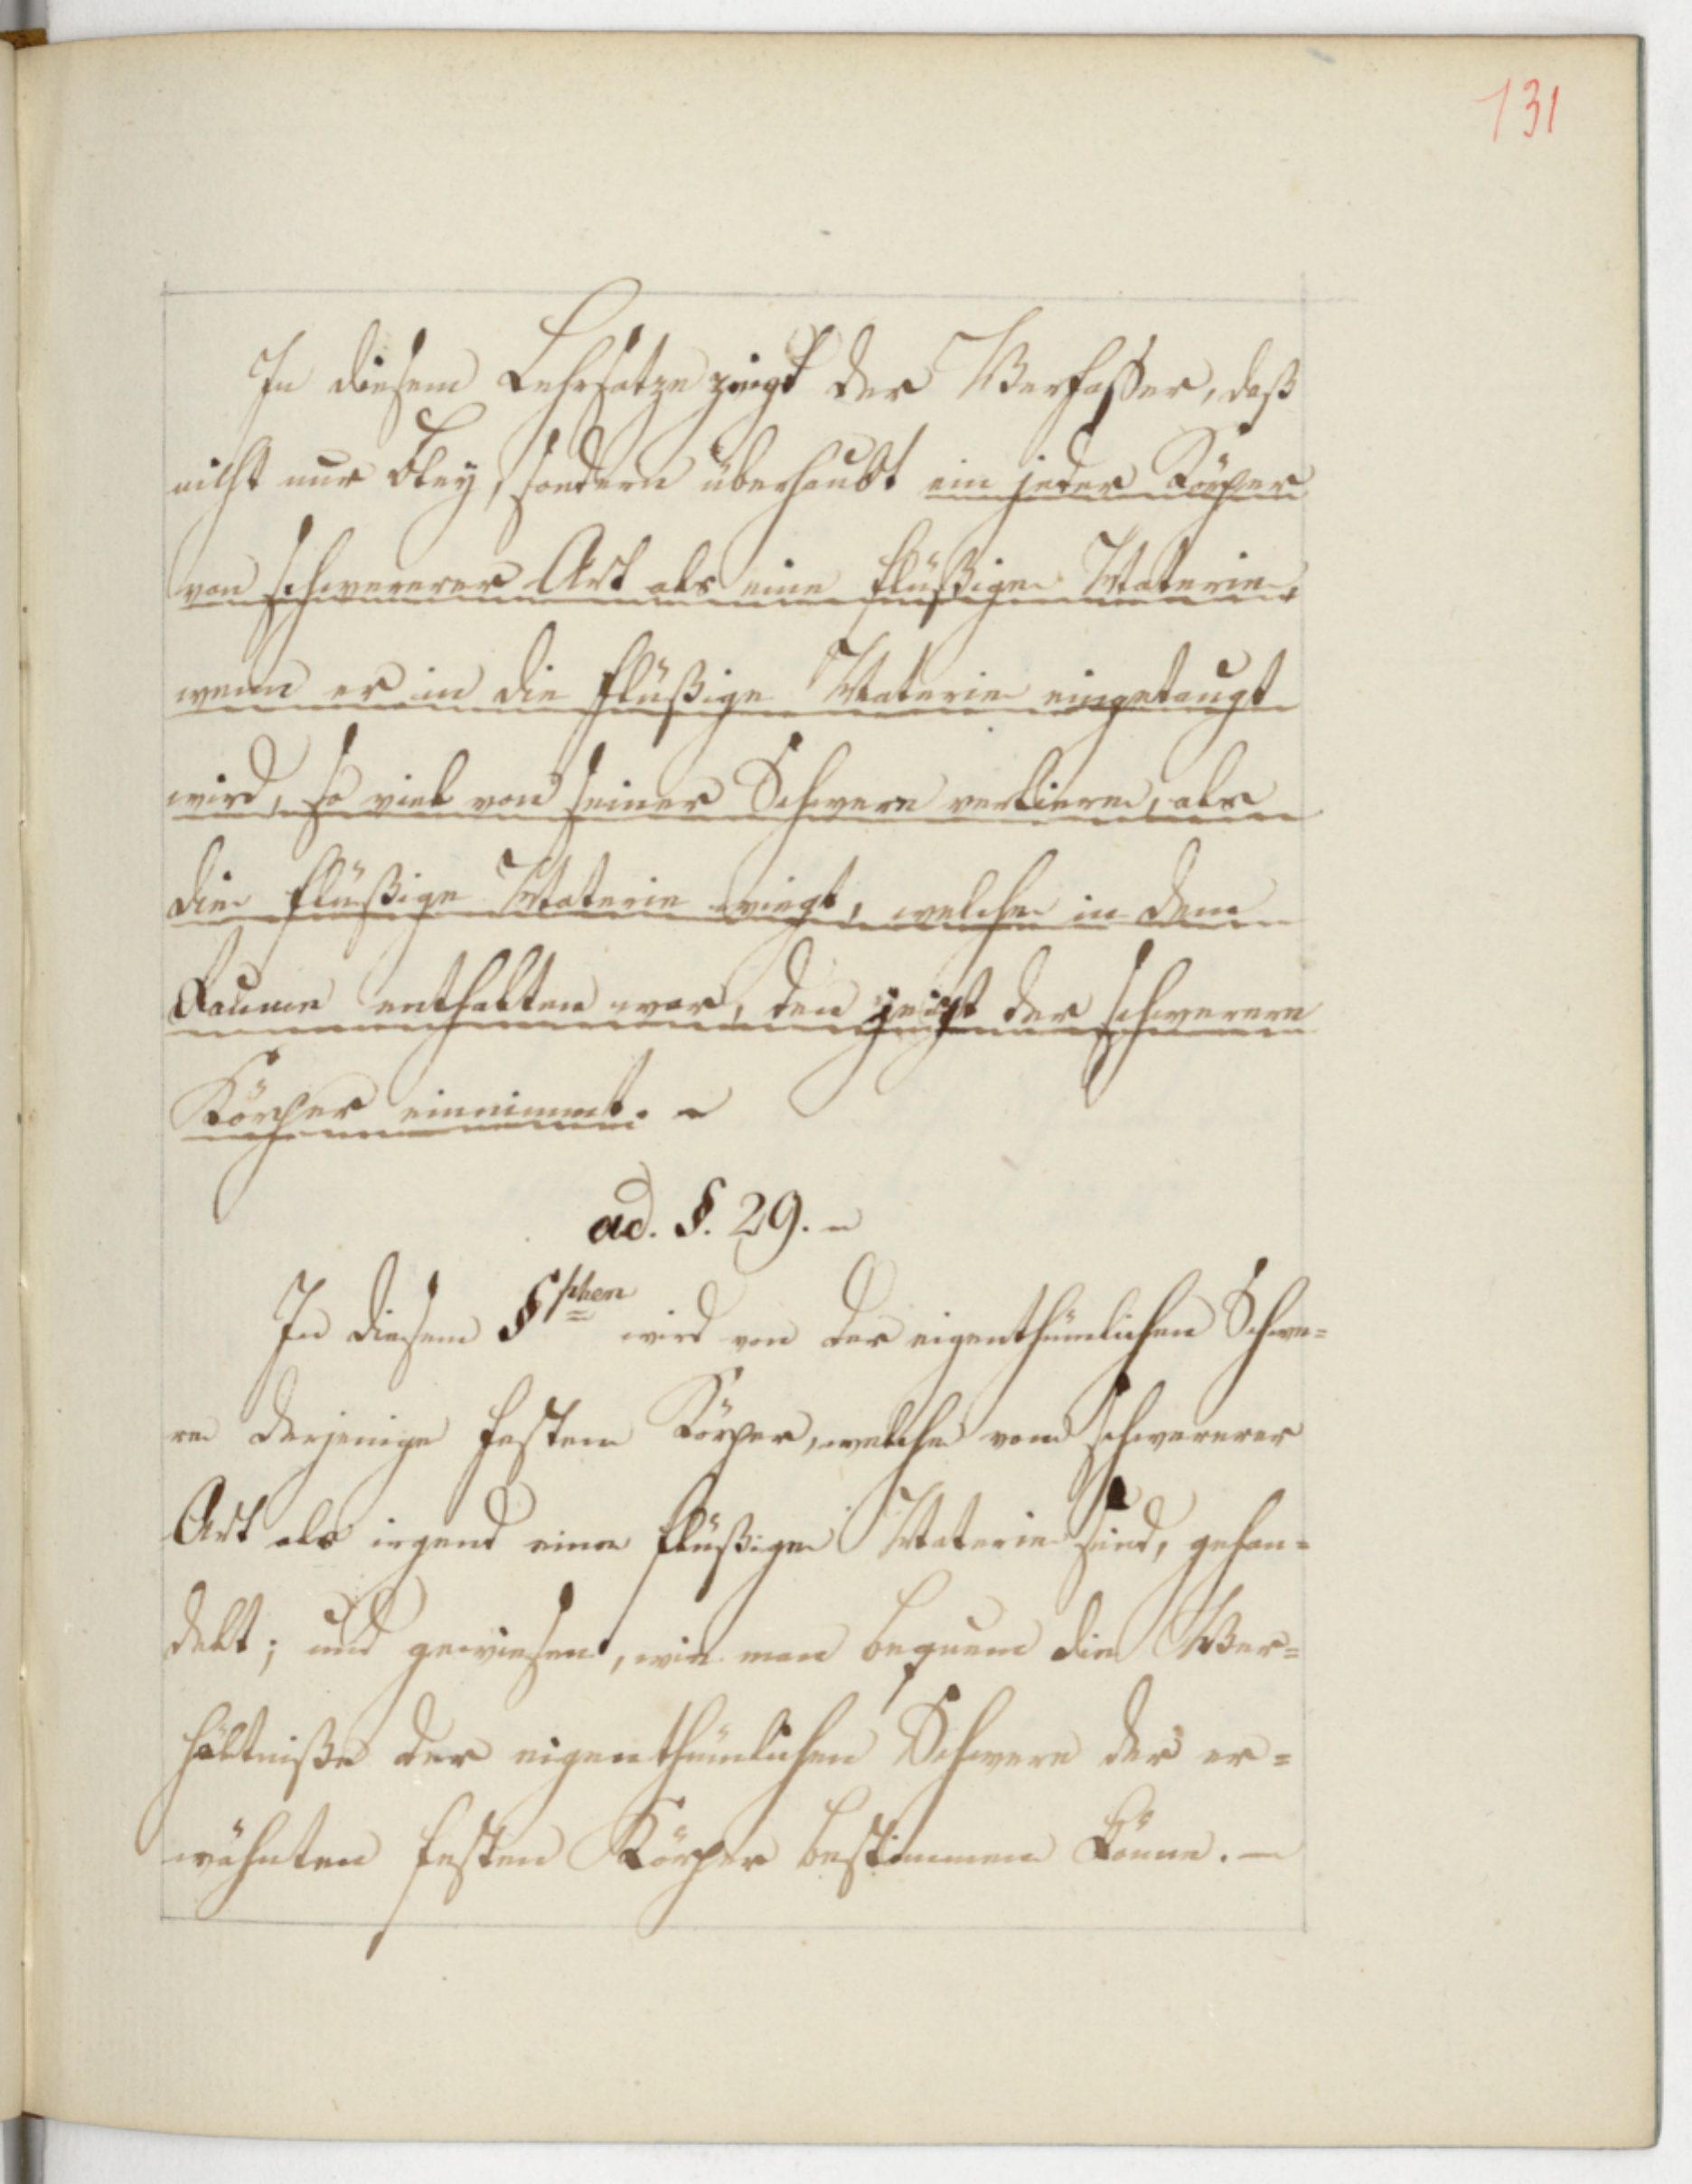 131
In diesem Lehrsatze zeigt der Verfasser, daß
nicht nur Bley, sondern überhaubt ein jeder Körper
von schwererer Art als eine flüßige Materie,
wenn er in die flüßige Materie eingetaugt
wird, so viel von seiner Schwere verliere, als
die flüßige Materie wiegt, welche in dem
Raume enthalten war, den jetzt der schwerere
Körper einnimmt. -
ad. §. 29. -
In diesem §phen wird von der eigenthümlichen Schwe=
re derjenige festen Körper, welche von schwererer
Art als irgend eine flüßige Materie sind, gehan=
delt; und gewiesen, wie man bequem die Ver=
hältniße der eigenthümlichen Schwere der er=
wähnten festen Körper bestimmen könne. -